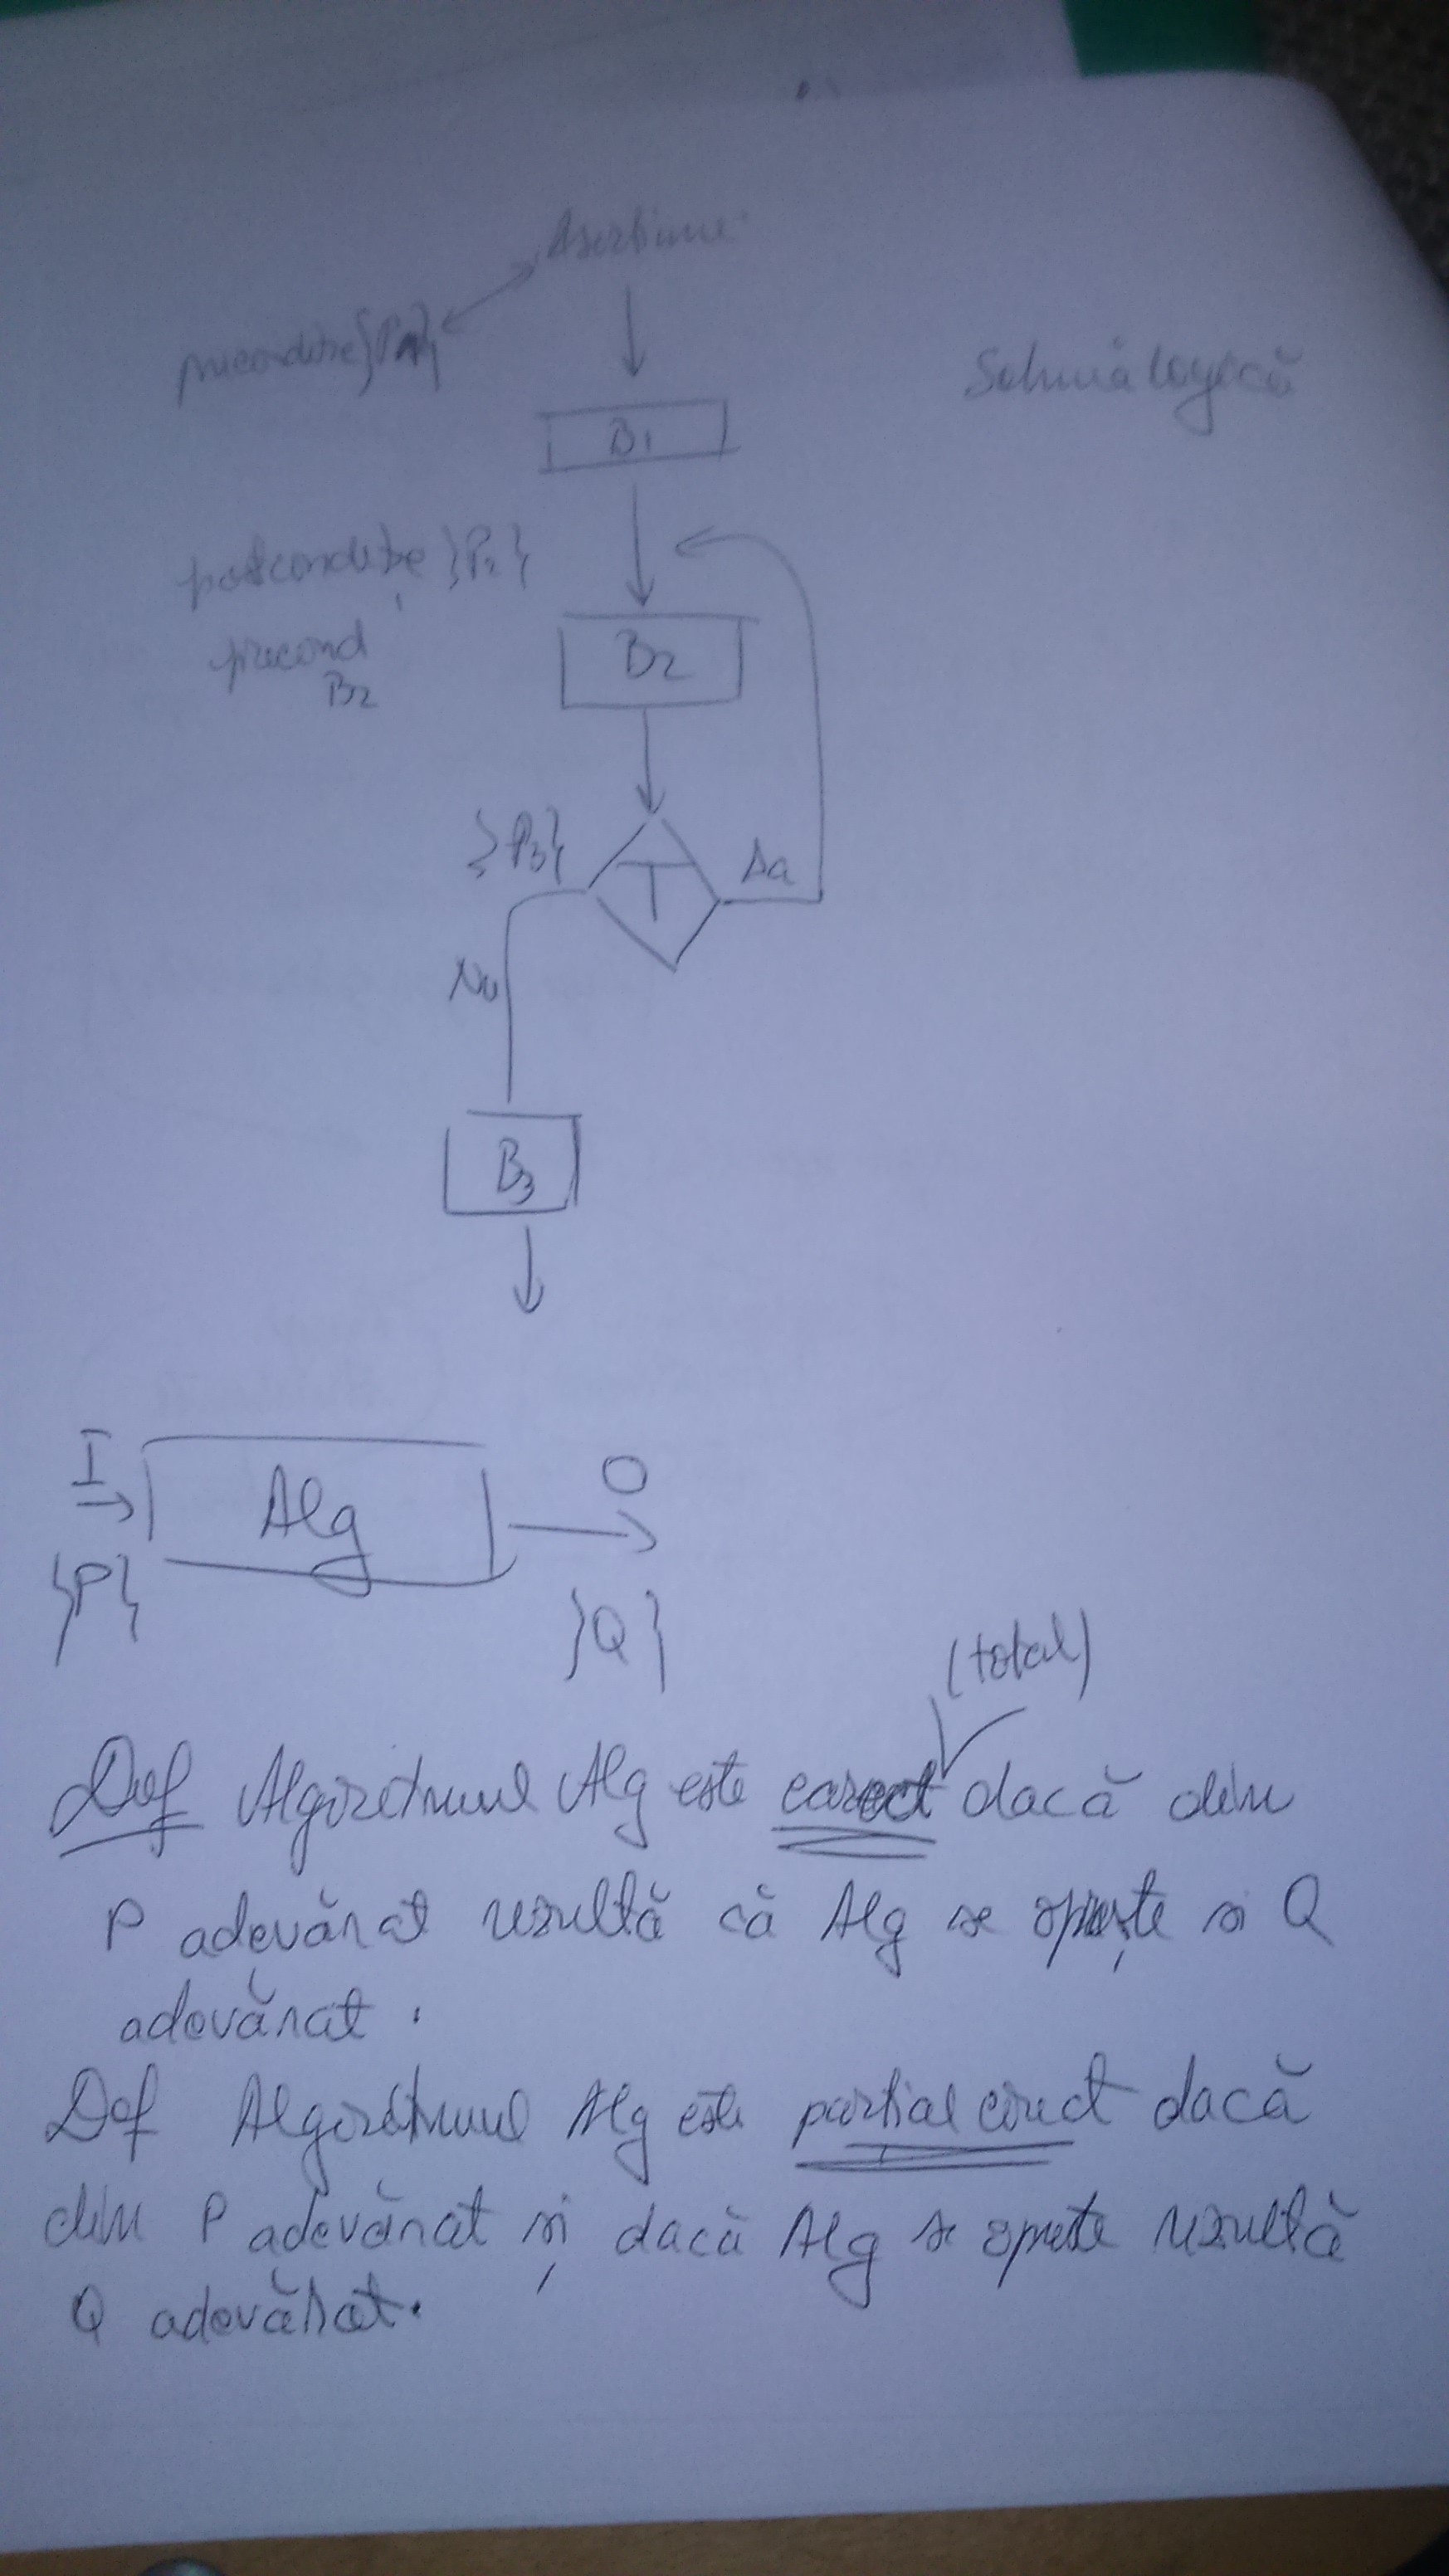 Aserțiune
precondiție {P1}
Schemă logică
B1
postcondiție {P2}
precond
B2
B2
{P3}
T
Da
Nu
B3
I
Alg
O
{P}
{Q}
(total)
Def Algoritmul Alg este corect dacă din
P adevărat rezultă că Alg se oprește și Q
adevărat.
Def Algoritmul Alg este parțial corect dacă
din P adevărat și dacă Alg se oprește rezultă
Q adevărat.